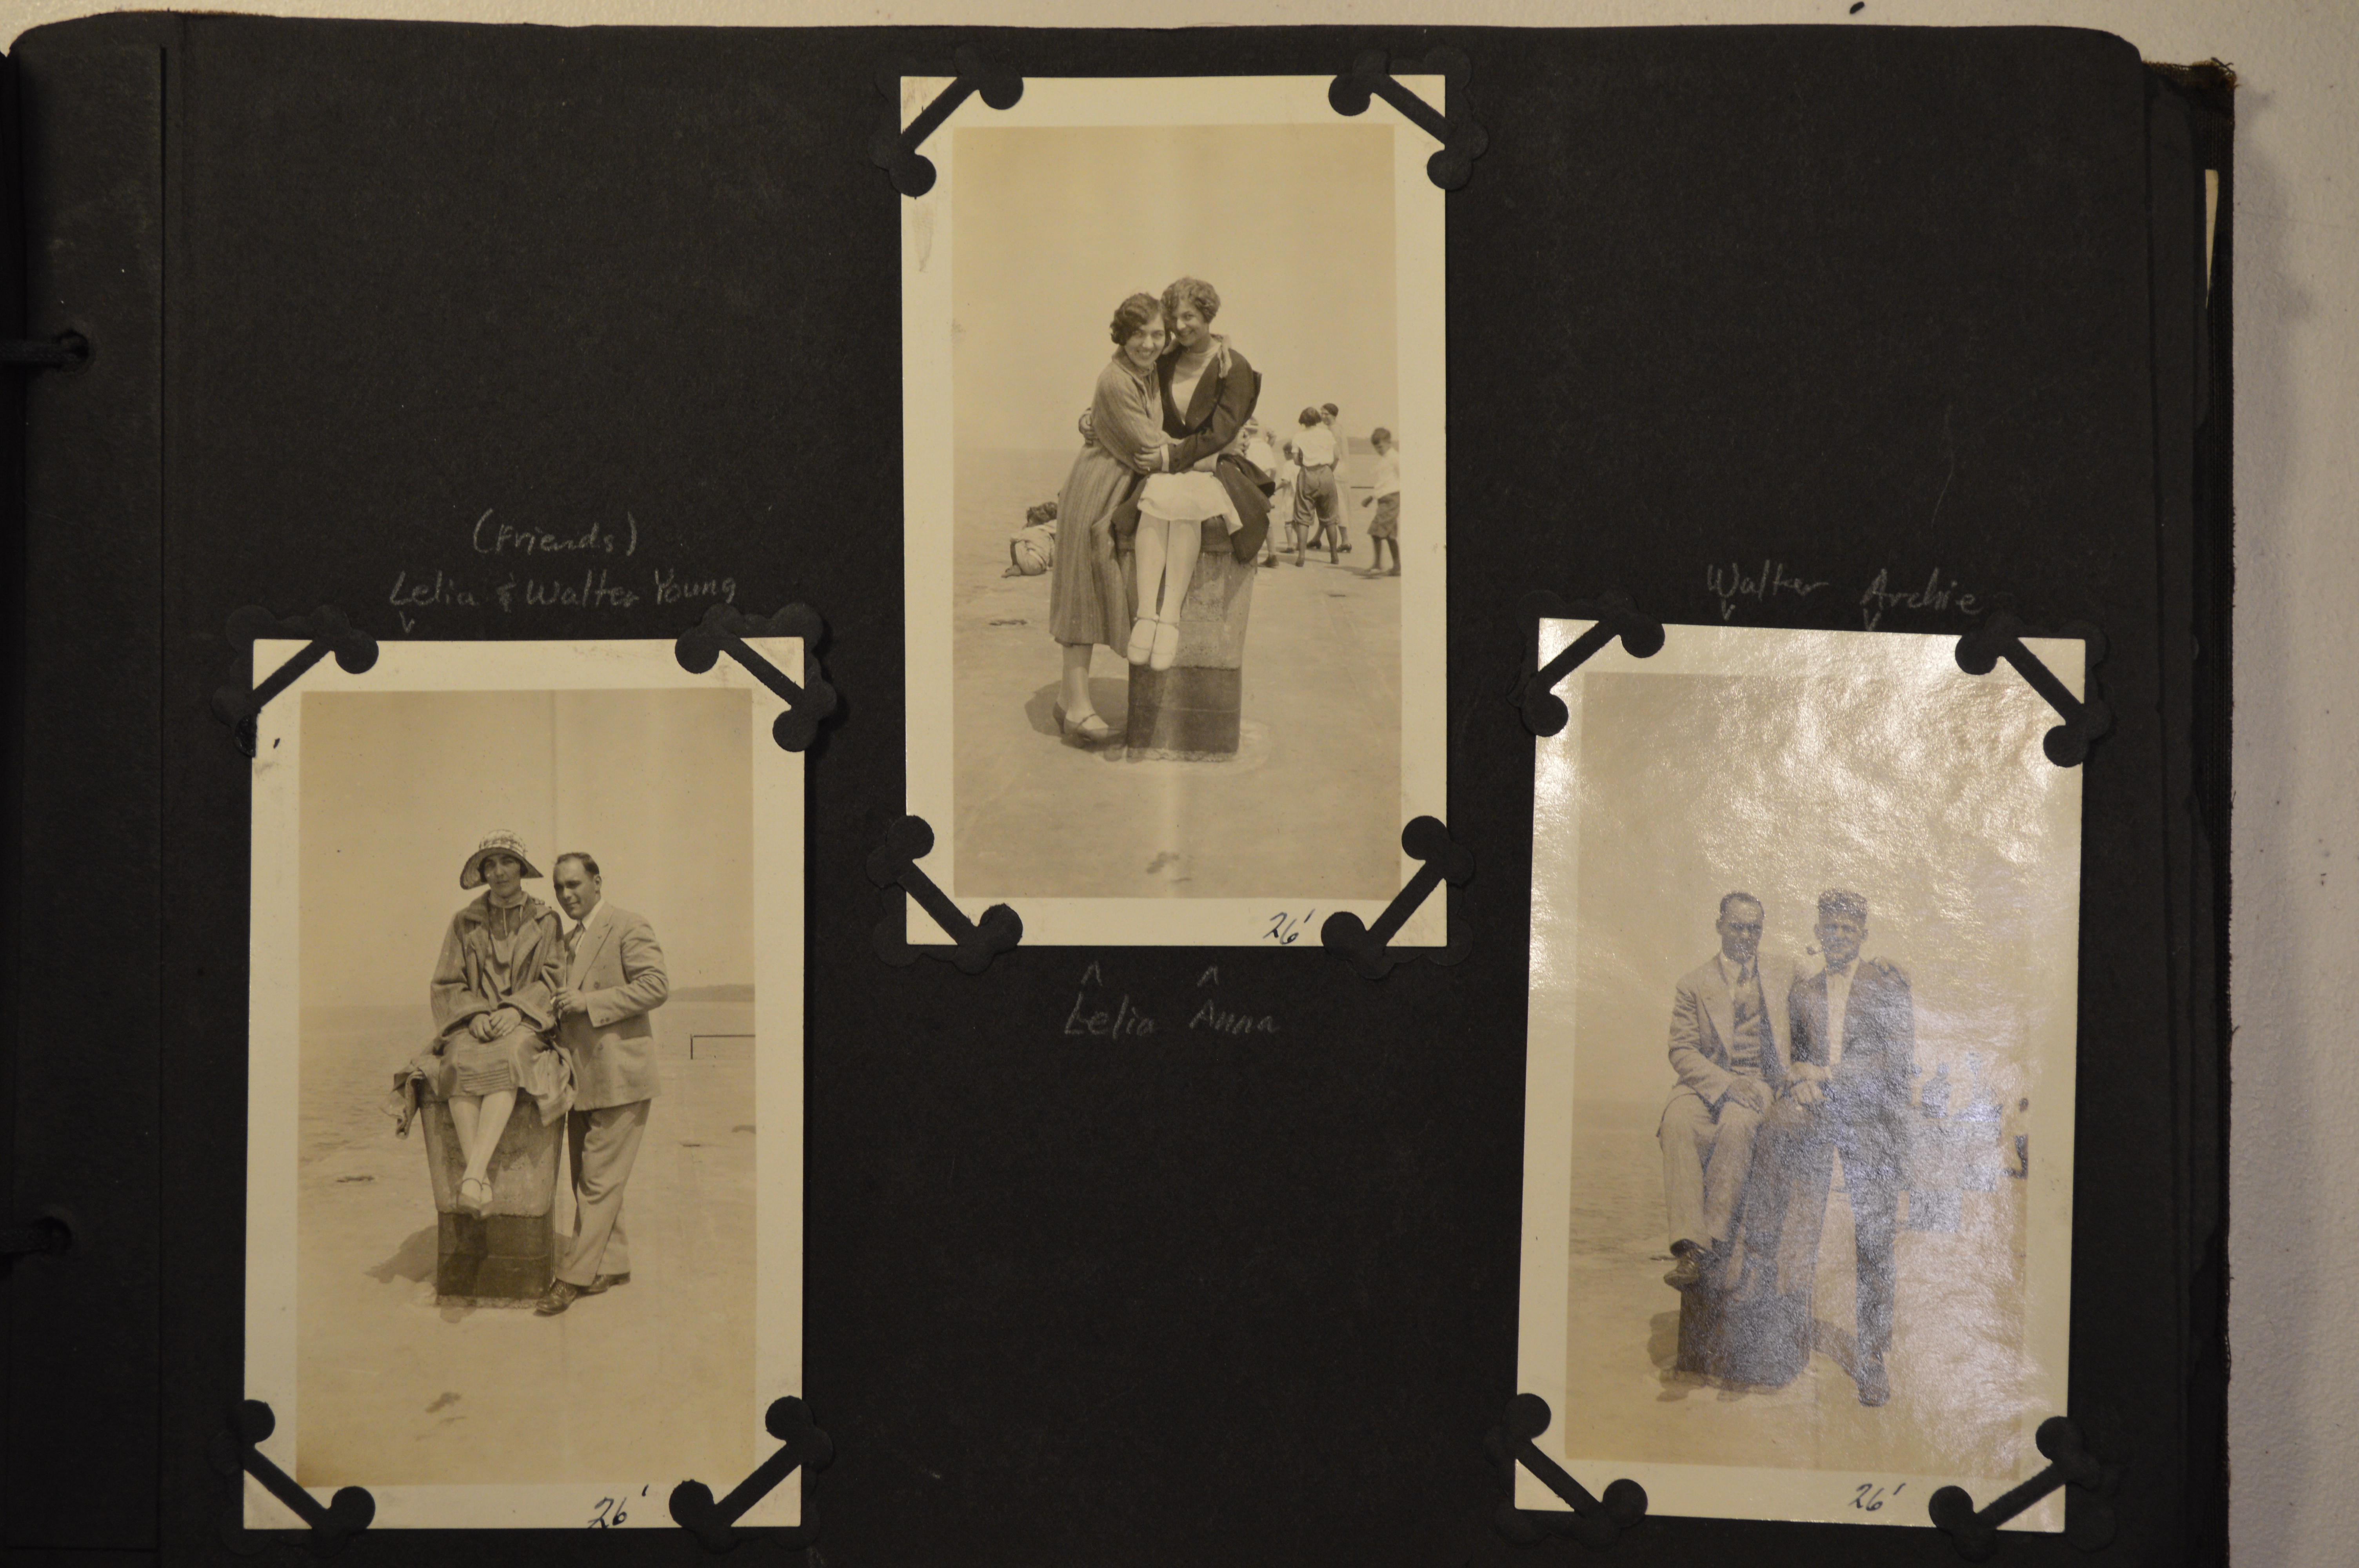 (Friends)
Lelia & Walter Young
v
26'
26'
^ ^
Lelia Anna
Walter Archie
v v
26'